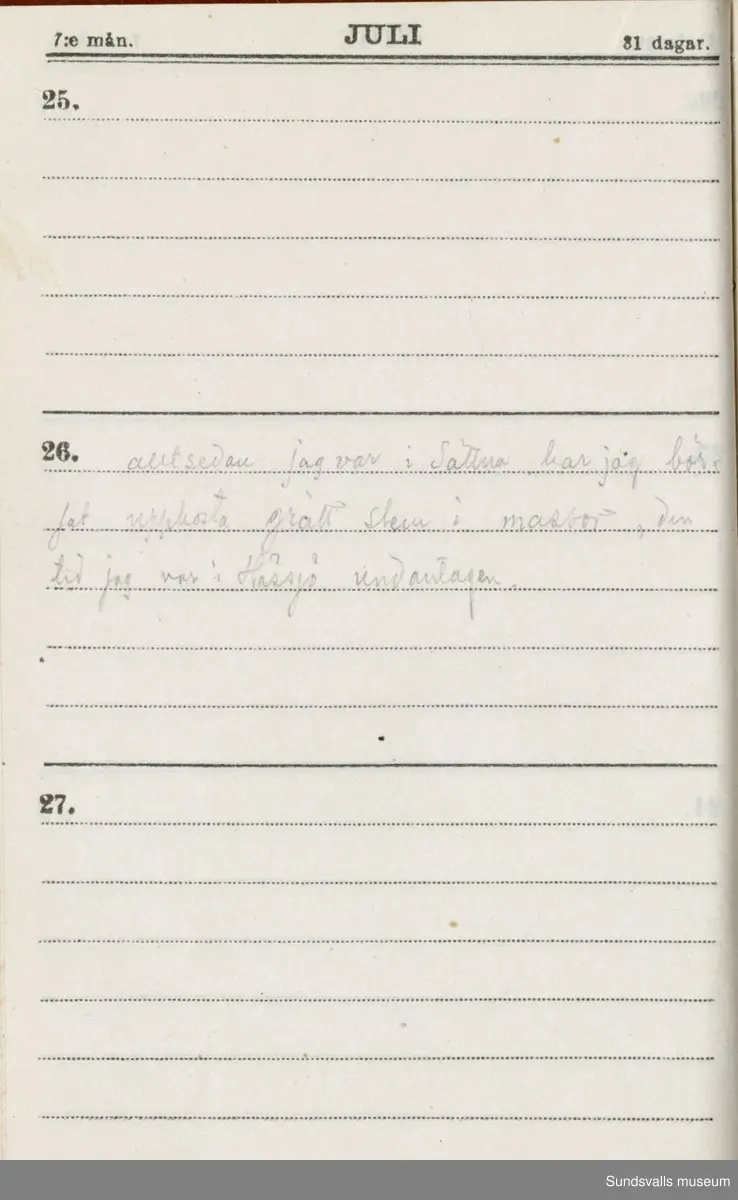 7:e mån. JULI 31 dagar.
25.
26. alltsedan jag var i Sättna har jag bör-
jat upphosta grått slem i massor, den
tid jag var i Hässjö undantagen.
27.
Sundsvalls museum